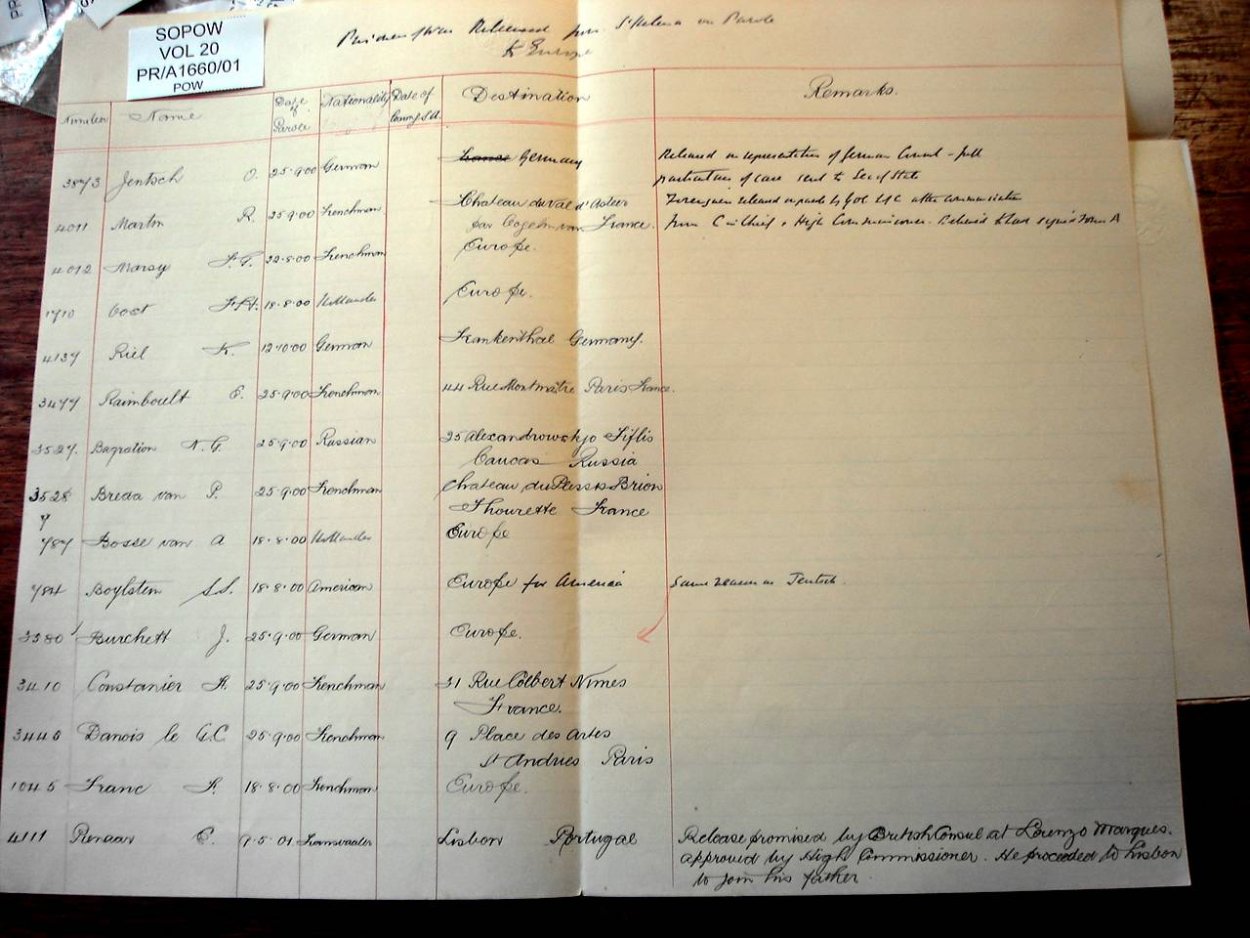 SOPOW
VOL 20
PR/A1660/01
POW
Prisoners of War Released from St Helena on Parole
to Europe
Number Name Date of Parole Nationality Date of leaving Destination Remarks.
3873 Jentsch O. 25.9.00 German Germany Released on representation of German Consul - full
particulars of case sent to Sec of State
4011 Martin R. 25.9.00 Frenchman Chateau du Val d'Astier Foreigner released on parole by GOC after communication
par Cogolin var France. from C in Chief & High Commissioner. Believed to have signed Form A
4012 22.8.00 Frenchman Europe.
1710 18.8.00 Hollander Europe.
4137 Riel K. 12.10.00 German Frankenthal Germany.
3477 Raimboult E. 25.9.00 Frenchman 44 Rue Montmatre Paris France.
3527. Bagration N.G. 25.9.00 Russian 25 Tiflis
Caucas Russia
3528 Breda van P. 25.9.00 Frenchman Chateau du Plessis Brion
Thourette France
787 Bosse van A 18.8.00 Hollander Europe
784 Boylsten S.S. 18.8.00 American Europe for America Same reason as Jentsch.
3380 Burchett J. 25.9.00 German Europe.
3410 Constanier A. 25.9.00 Frenchman 31 Rue Colbert Nimes
France.
3446 Danois le G.C 25.9.00 Frenchman 9 Place des Artes
St Andres Paris
1045 Franc 18.8.00 Frenchman Europe.
4111 Renaar C. 9.5.01 Transvaaler Lisbon Portugal Release promised by British Consul at Lorenzo Marques.
approved by High Commissioner. He proceeded to Lisbon
to join his father.